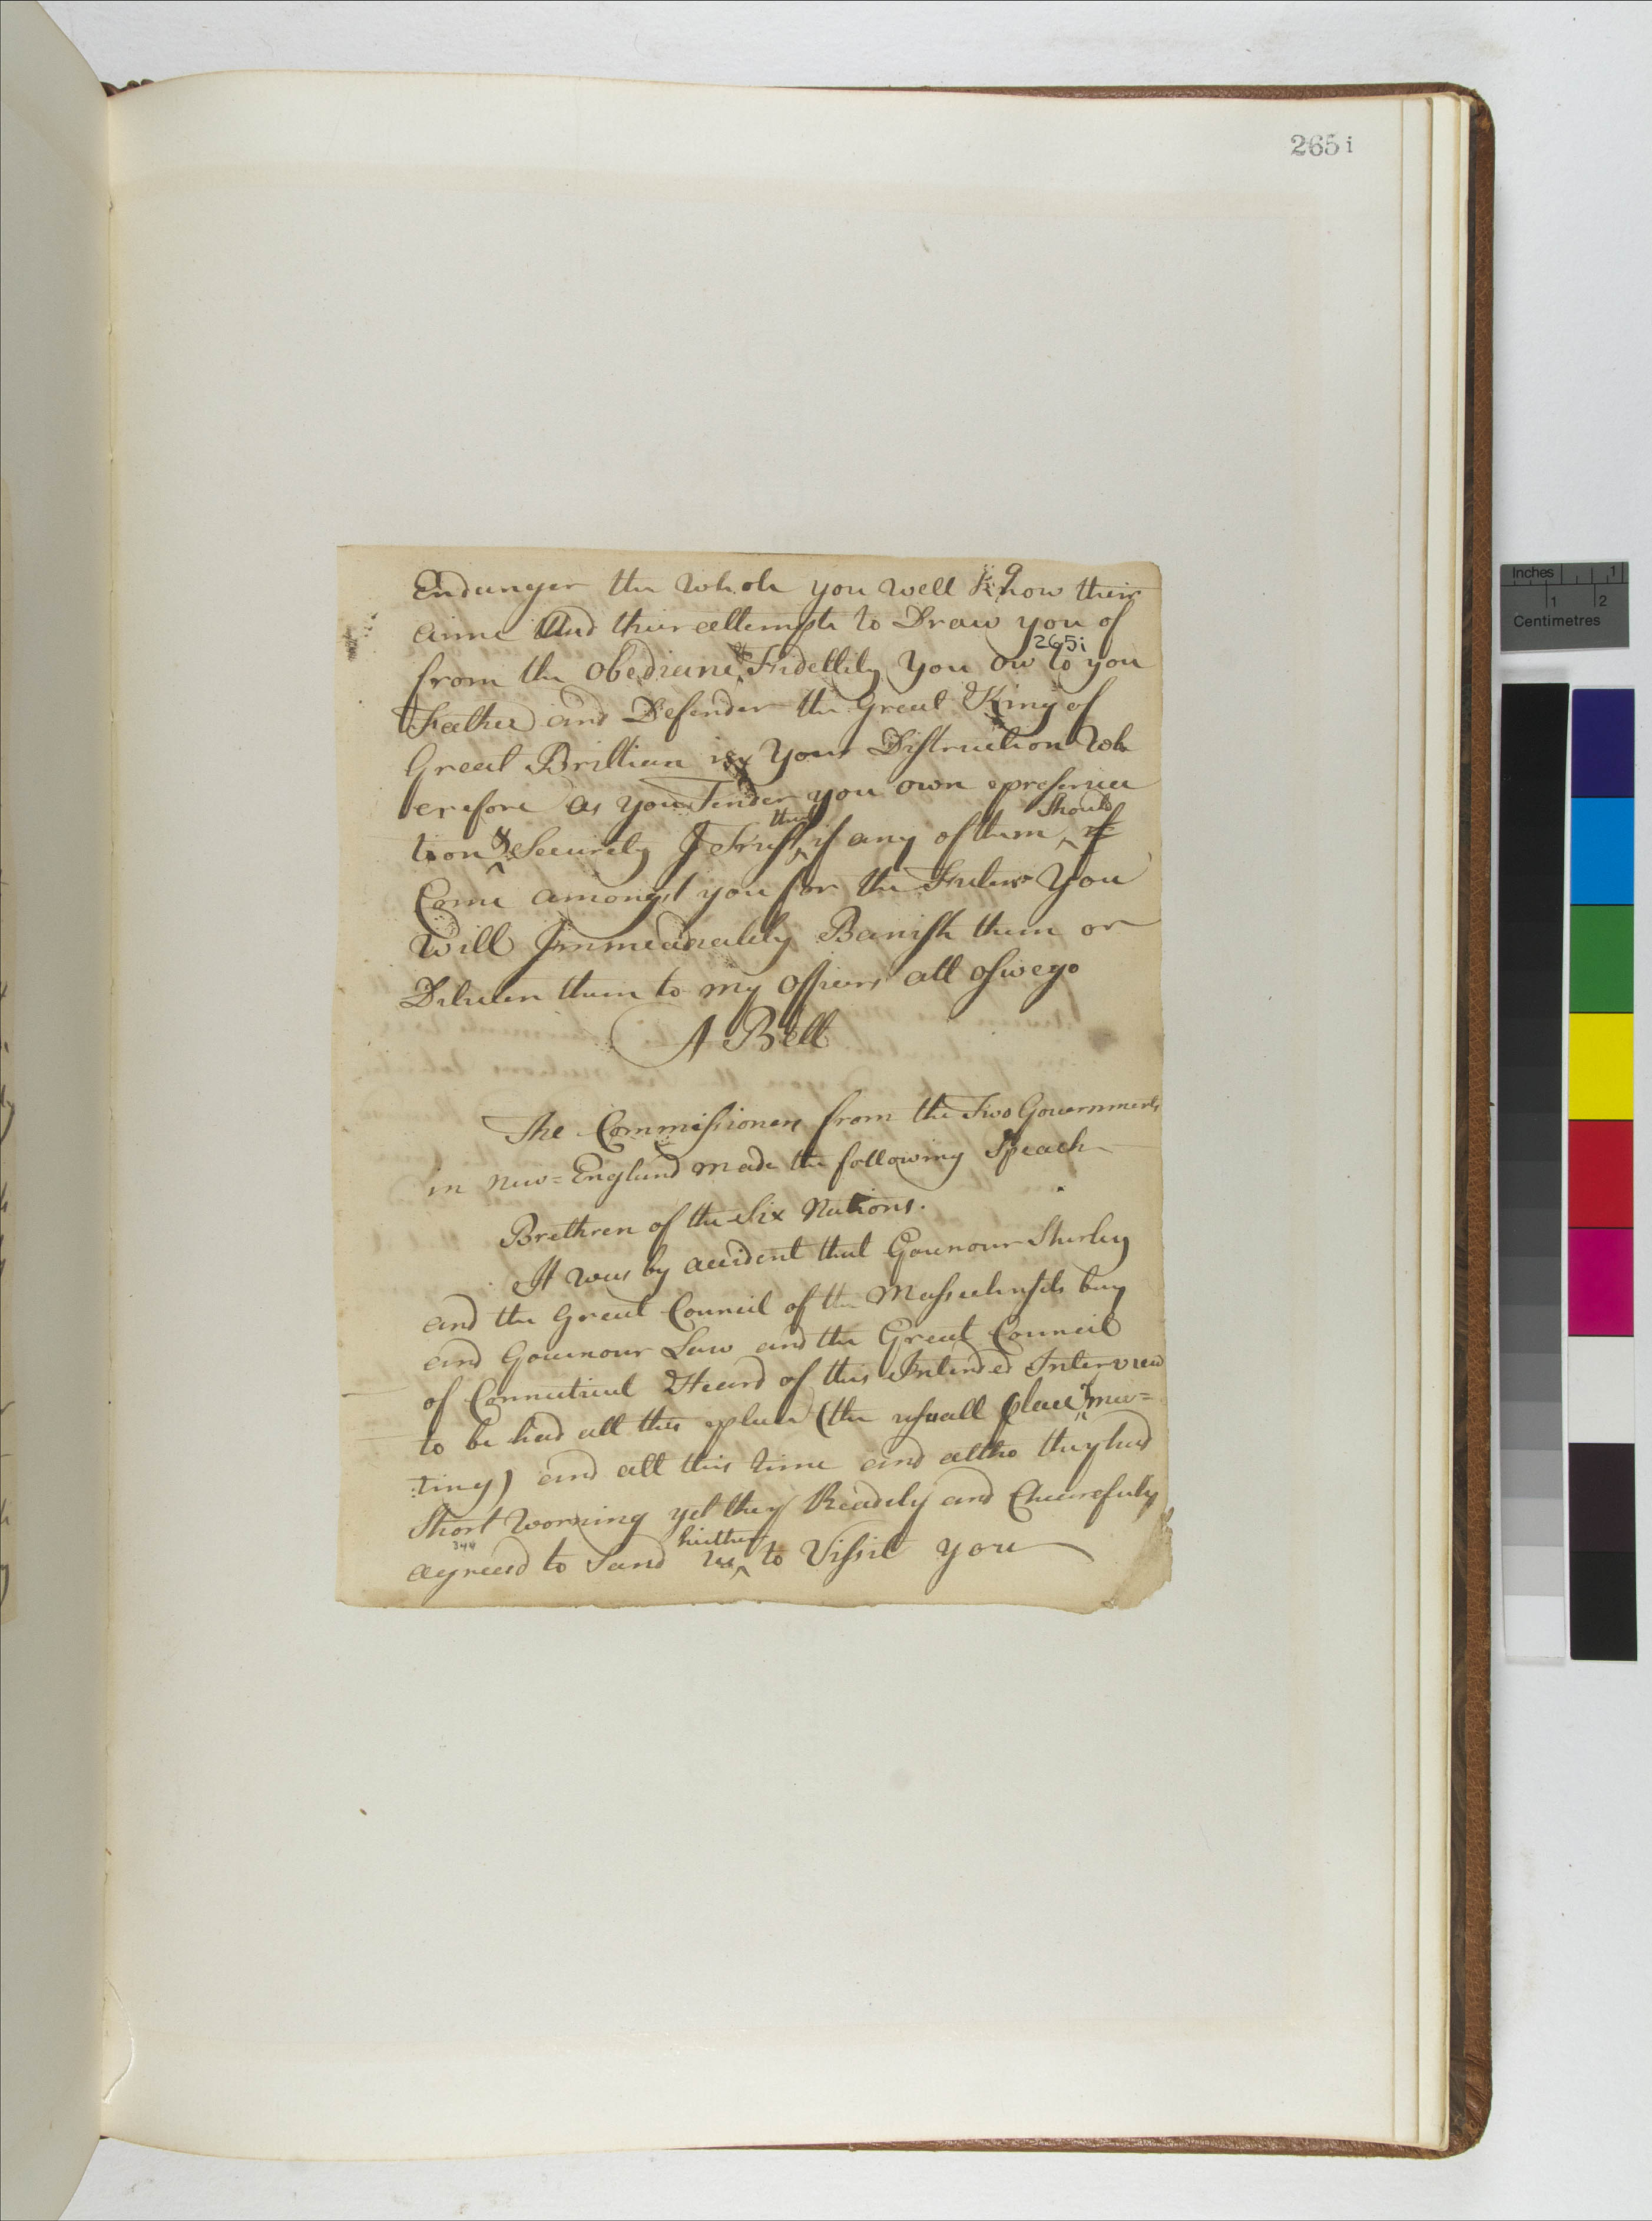 265 i
9
Endanger the Whole you well Know their
aime And their attempts to Draw you of
265i
from the obediene & Fidellity You ow to you
Father and Defender the Great King of
Great Brittian is Your Distruction Wh
erefore as you Tender you own preserva
tion & Security I Trust that if any of them should if
Come amongst you for the Future You
Will Immeadiately Banish them or
Deliver them to my officers att oswego
A Belt
The Commissioners from the Two Governments
in New=England made the following Speach
Brethren of the Six Nations.
It was by accident that Gounour Shirley
and the Great Council of the Massachusets bay
and Gouenour Law and the Great Council
of Connecticut Heard of this Intended Interview
to be had att this place (the usuall place of mee=
:ting) and att this time and altho they had
Short Worning yet they Readily and Chearefully
344
agreed to Sand us hither to Vissit you